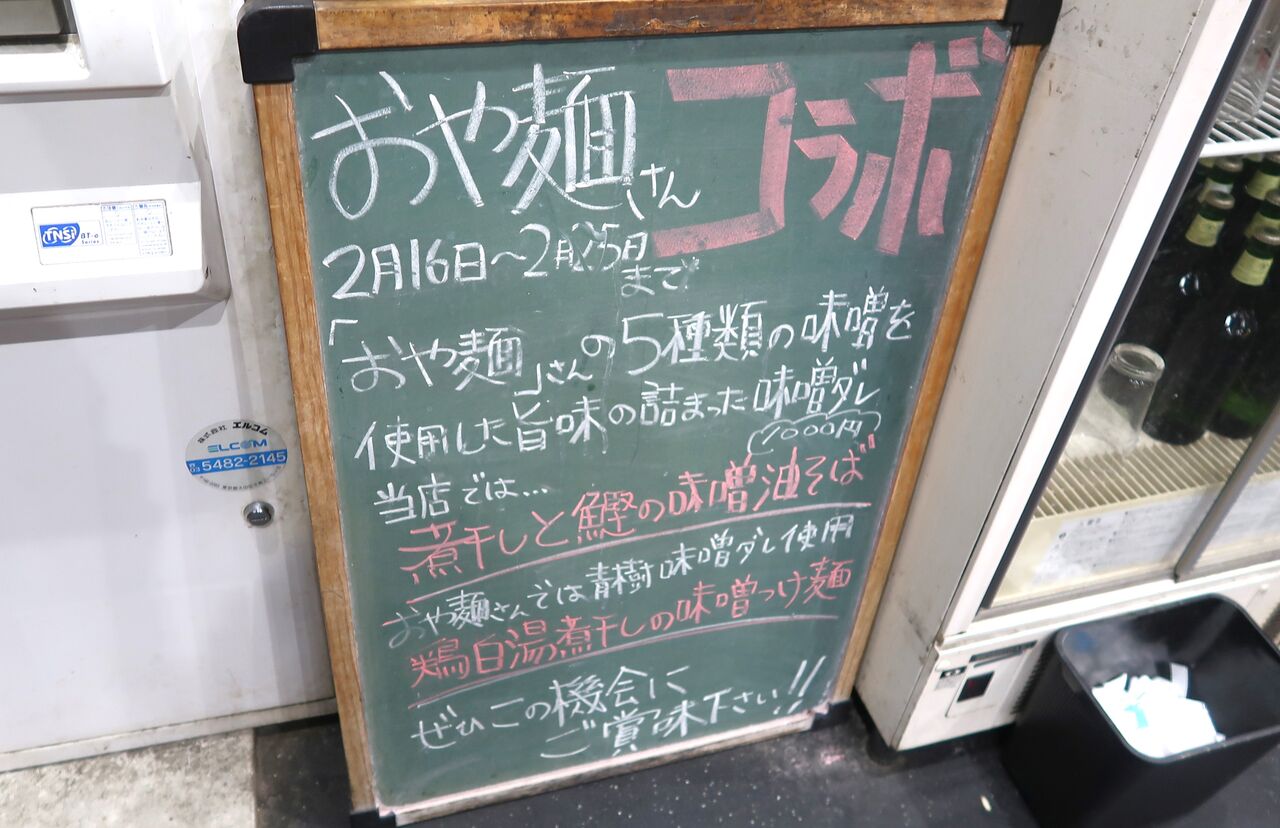 おや麺さん コラボ
2月16日〜2月25日まで
「おや麺」さんの5種類の味噌を
使用した旨味の詰まった味噌ダレ
1000円
当店では…
煮干しと鰹の味噌油そば
おや麺さんでは青樹味噌ダレ使用
鶏白湯煮干しの味噌つけ麺
ぜひこの機会に
ご賞味下さい!!
TNSi
BT-α
Series
株式会社 エルコム
ELCOM
03 5482-2145